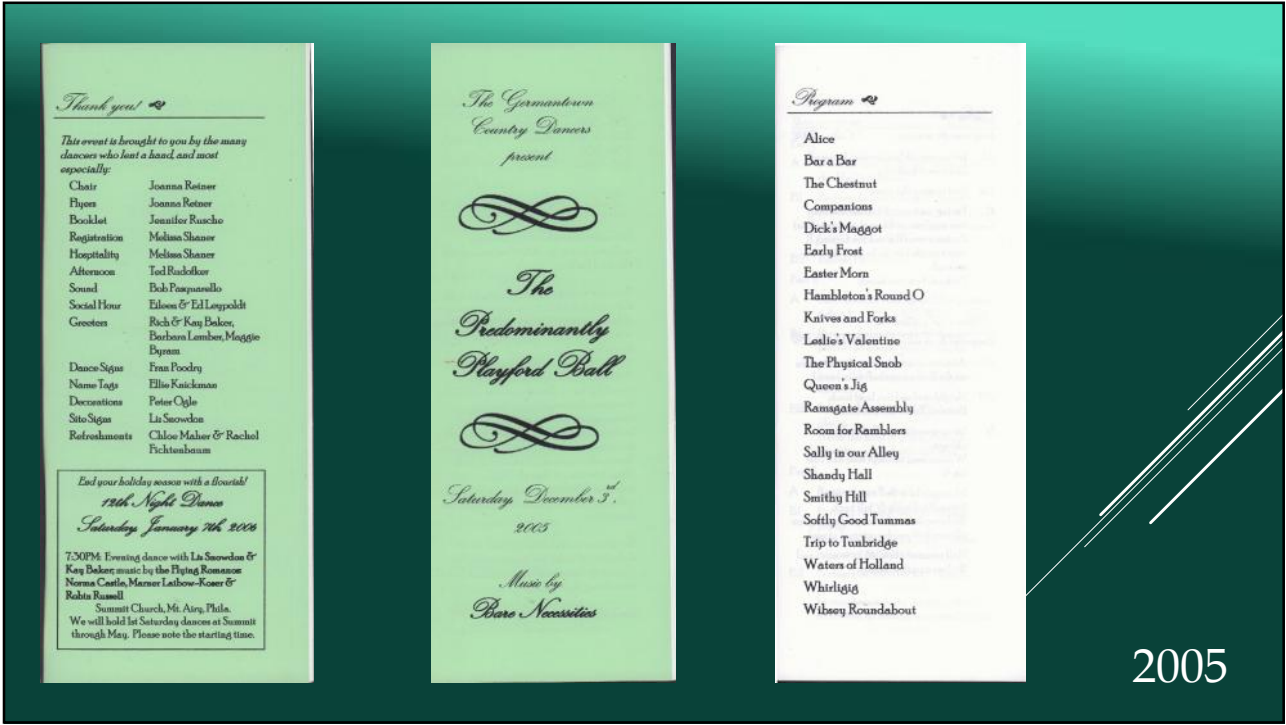 Thank you!
This event is brought to you by the many
dancers who lent a hand, and most
especially:
Chair Joanna Reiner
Flyers Joanna Reiner
Booklet Jennifer Rusche
Registration Melissa Shaner
Hospitality Melissa Shaner
Afternoon Ted Rudofker
Sound Bob Pasquarello
Social Hour Eileen & Ed Leypoldt
Greeters Rich & Kay Baker,
Barbara Lember, Maggie
Byram
Dance Signs Fran Poodry
Name Tags Ellie Knickman
Decorations Peter Ogle
Site Signs Liz Snowdon
Refreshments Chloe Maher & Rachel
Fichtenbaum
End your holiday season with a flourish!
12th Night Dance
Saturday, January 7th, 2006
7:30PM: Evening dance with Liz Snowdon &
Kay Baker; music by the Flying Romanos:
Norma Castle, Marner Laibow-Koser &
Robin Russell
Summit Church, Mt. Airy, Phila.
We will hold 1st Saturday dances at Summit
through May. Please note the starting time.
The Germantown
Country Dancers
present
The
Predominantly
Playford Ball
Saturday, December 3rd,
2005
Music by
Bare Necessities
Program
Alice
Bar a Bar
The Chestnut
Companions
Dick's Maggot
Early Frost
Easter Morn
Hambleton's Round O
Knives and Forks
Leslie's Valentine
The Physical Snob
Queen's Jig
Ramsgate Assembly
Room for Ramblers
Sally in our Alley
Shandy Hall
Smithy Hill
Softly Good Tummas
Trip to Tunbridge
Waters of Holland
Whirligig
Wibsey Roundabout
2005